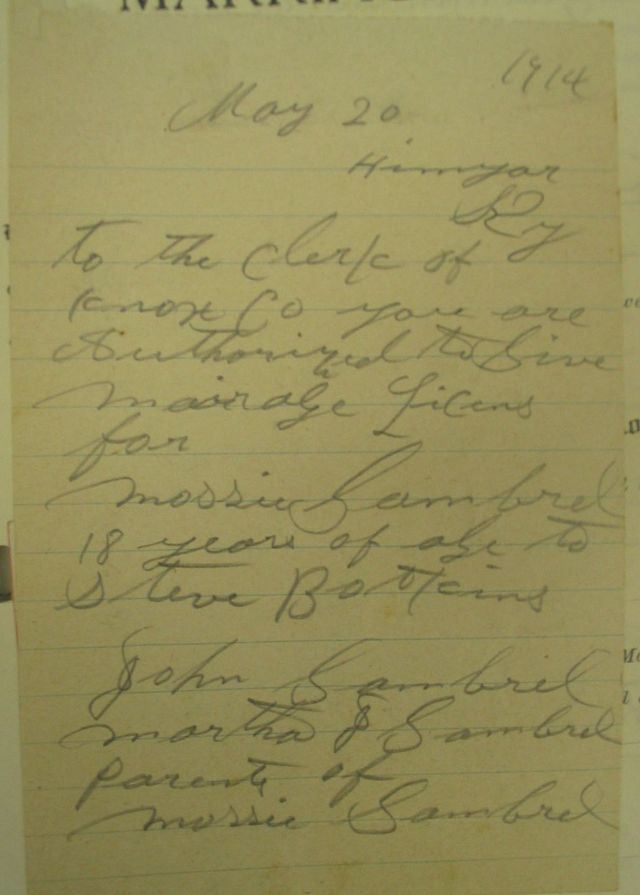 1914
May 20
Himyar
Ky
to the Clerk of
Knox Co you are
Authorized to Give
mairage Licens
for
Mossie Gambrel
18 years of age to
Steve Botkins
John Gambrel
Martha J Gambrel
parents of
Mossie Gambrel